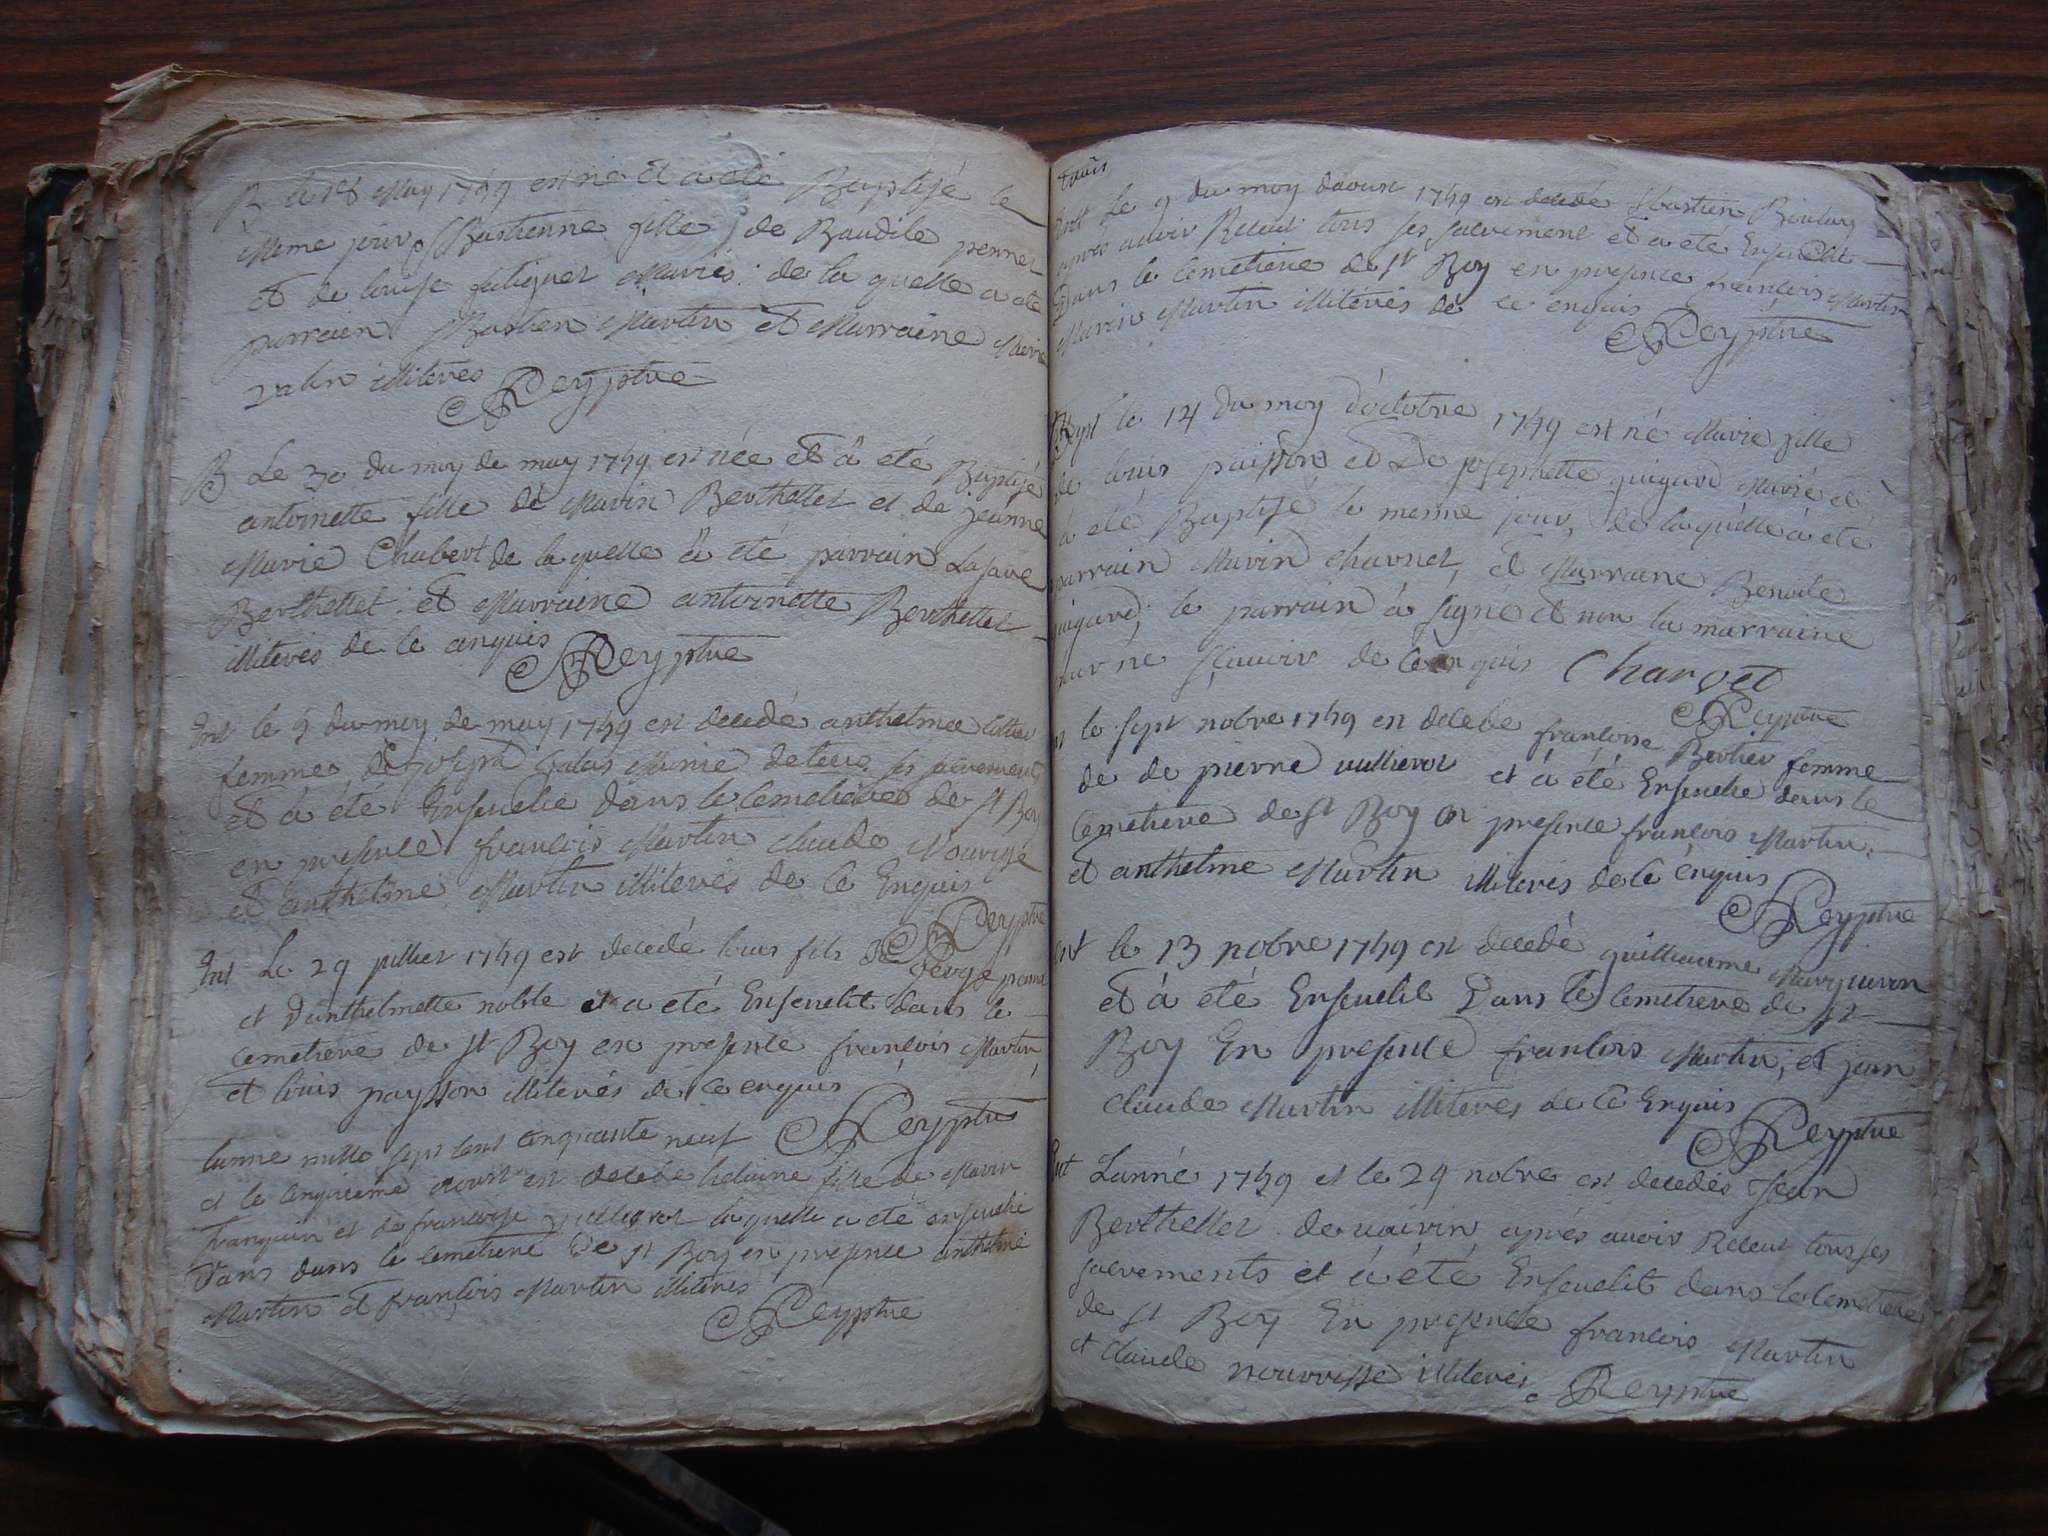 B le 18 May 1759 est né et a eté Baptisé le
meme jour Bastienne fille de Baudile pernet
et de louise falignet mariés de la quelle a eté
parrain Bastien Martin et Marraine Marie
illiterés Reyptre
B Le 30 du moy de may 1759 est née et â eté Baptisé
antoinette fille de Marin Berthellet et de jeanne
Marie Chabert de la quelle â eté parrain
Berthellet et Marraine antoinette Berthellet
illiterés de ce anquis Reyptre
Ent le 9 du moy de may 1759 est decedé anthelmea
femme de joseph galas munie de tous ses sacrements
et a été Ensevelie dans le Cemetiere de st Boy
en presence francois Martin claude Nourisse
et anthelme Martin illiterés de ce Enquis
Reyptre
Ent Le 29 juillet 1759 est decedé louis fils de
et Danthelmette noble et a eté Ensevelit dans le
cemetiere de st Boy en presence francois Martin
et louis paysson illiterés de ce enquis
Reyptre
lanne mille sept cent cinquante neuf
et le cinquieme aoust est decedé fille de Marin
franquin et de francoise la quelle a eté ensevelie
dans dans le cemetiere de st Boy en presence anthelme
Martin et francois Martin illiterés
Reyptre
Ent Le 9 du moy daoust 1759 est decedé Sbastien
apres avoir Receut tous ses sacriment et a eté Ensevelit
Dans le Cemetiere de st Boy en presence francois Martin
Marin Martin illiterés de ce enquis
Reyptre
Bapt le 14 du moy d'octobre 1759 est né Marie fille
de louis paisson et De josephette guigard Marié et
à eté Baptisé le meme jour, de laquelle à eté
parrain Marin charvet, et Marraine Benoite
guigard, le parrain à signé et non la marraine
pour ne sçavoir de ce enquis Charvet
Reyptre
le sept nobre 1759 est decede francoise Bertier femme
de de pierre vullierot et à été Ensevelie dans le
Cemetiere de st Boy en presence francois Martin
et anthelme Martin illiterés de ce enquis
Reyptre
Ent le 13 nobre 1759 est decedé guillieaume
et à eté Ensevelit Dans le Cemetiere de st
Boy En presence francois Martin, et jean
claude Martin illiterés de ce Enquis
Reyptre
Ent Lanné 1759 et le 29 nobre est decedés Jean
Berthellet de apres avoir Receut tous ses
sacrements et à été Ensevelit dans le Cemetiere
de st Boy En presence francois Martin
et claude nourrisse illiterés
Reyptre